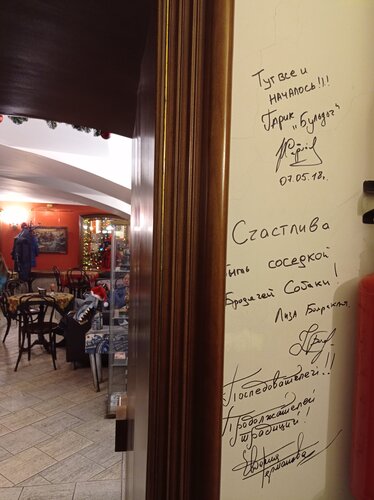 Тут все и
началось!!!
Гарик
„Бульдог“
07.05.18г.
Счастлива
быть соседкой
Бродячей Собаки!
Лиза Боярская.
Последователей!!
Продолжателей
традиций!
Германова